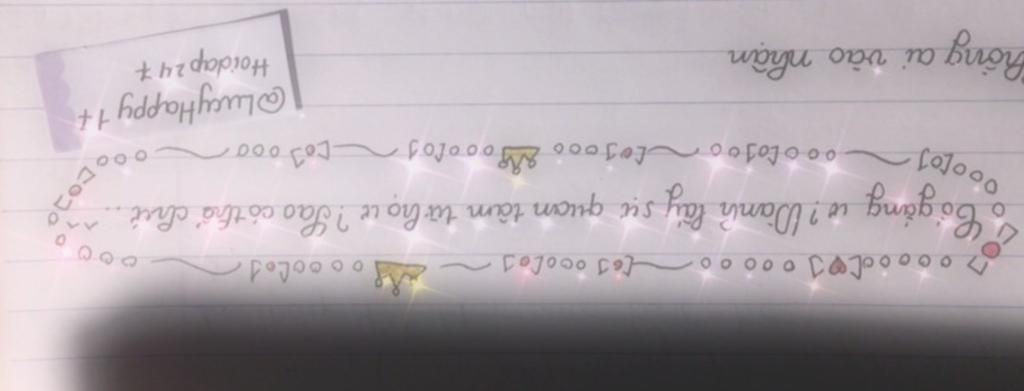 Cố gắng ư? Dành lấy sự quan tâm từ họ ư? Sao có thể chứ...
không ai vào nhận
@LucyHappy 1+
Hoidap247